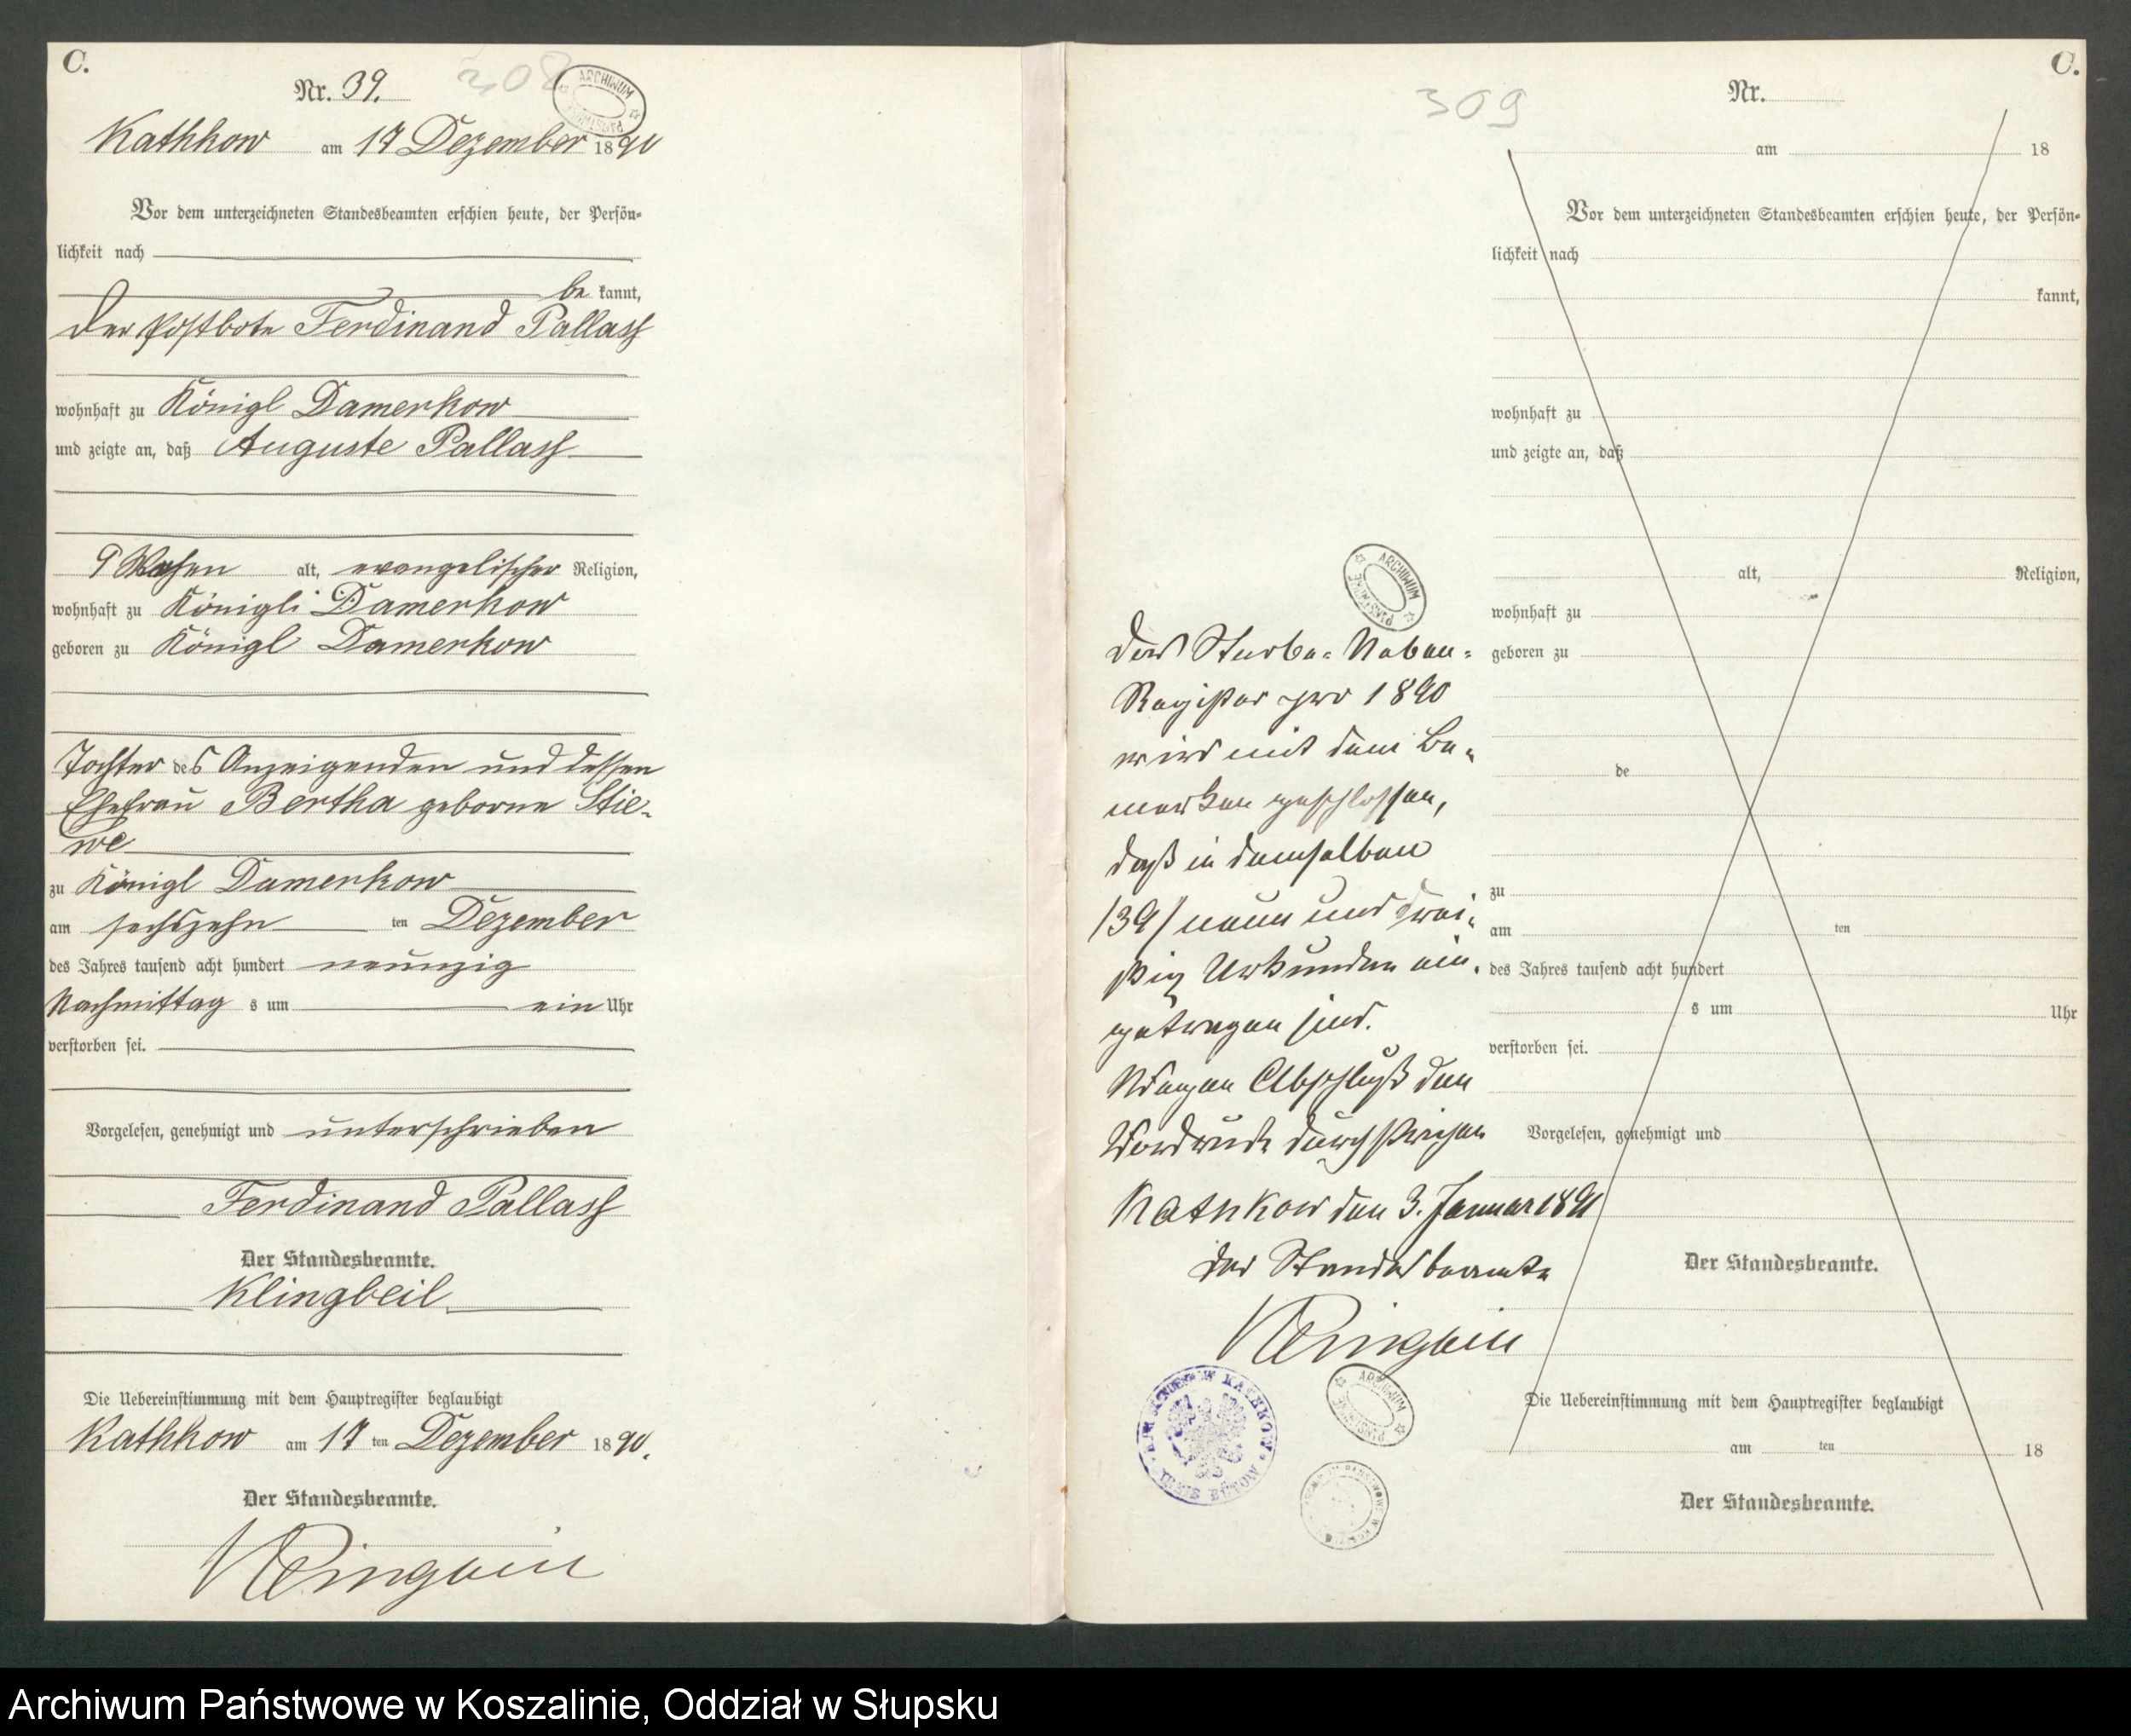 C.
Nr. 39.
308
ARCHIWUM
Kathkow am 17 Dezember 1890
Vor dem unterzeichneten Standesbeamten erschien heute, der Persön-
lichkeit nach
be kannt,
Der Postbote Ferdinand Pallass
wohnhaft zu Königl Damerkow
und zeigte an, daß Auguste Pallass
9 Wochen alt, evangelischer Religion,
wohnhaft zu Königl. Damerkow
geboren zu Königl Damerkow
Tochter des Anzeigenden und dessen
Ehefrau Bertha geborne Stie-
we
zu Königl Damerkow
am sechszehn ten Dezember
des Jahres tausend acht hundert neunzig
Nachmittag s um ein Uhr
verstorben sei.
Vorgelesen, genehmigt und unterschrieben
Ferdinand Pallass
Der Standesbeamte.
Klingbeil
Die Uebereinstimmung mit dem Hauptregister beglaubigt
Kathkow am 17 ten Dezember 1890.
Der Standesbeamte.
Klingbeil
C.
309
Nr.
am 18
Vor dem unterzeichneten Standesbeamten erschien heute, der Persön-
lichkeit nach
kannt,
wohnhaft zu
und zeigte an, daß
alt, Religion,
wohnhaft zu
geboren zu
de
zu
am ten
des Jahres tausend acht hundert
s um Uhr
verstorben sei.
Vorgelesen, genehmigt und
Der Standesbeamte.
Die Uebereinstimmung mit dem Hauptregister beglaubigt
am ten 18
Der Standesbeamte.
ARCHIWUM
Das Sterbe-Neben-
Register pro 1890
wird mit dem Be-
merken geschlossen,
daß in demselben
/39/ neun und drei-
ßig Urkunden ein-
getragen sind.
Wegen Abschluß den
Vordruck durchstrichen
Kathkow den 3. Januar 1891
Der Standesbeamte
Klingbeil
KATHKOW
KREIS BÜTOW
ARCHIWUM
Archiwum Państwowe w Koszalinie, Oddział w Słupsku